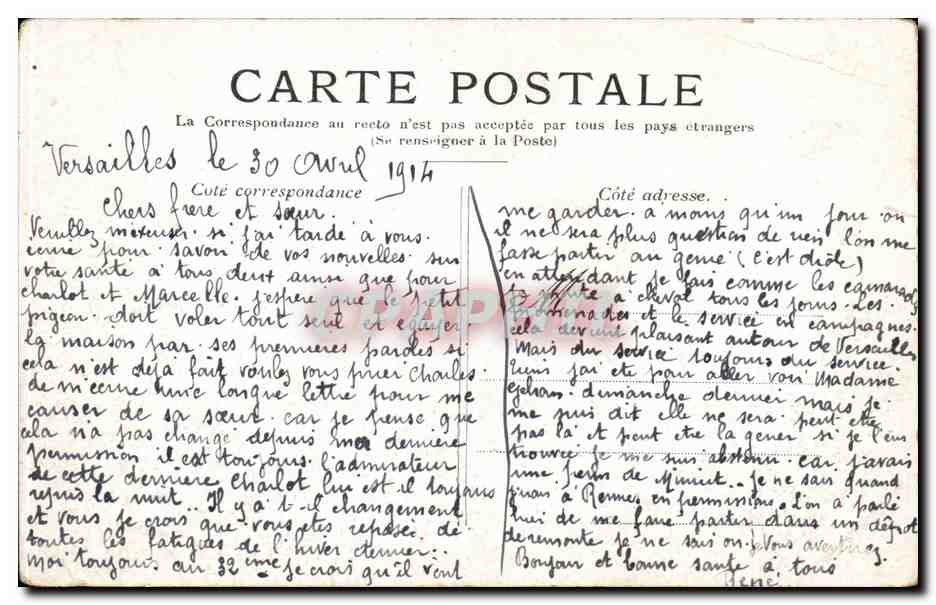 CARTE POSTALE
La Correspondance au recto n'est pas acceptée par tous les pays étrangers
(Se renseigner à la Poste)
Versailles le 30 Avril 1914
Coté correspondance
chers frere et sœur.
Veuillez m'excuser si j'ai tardé à vous.
ecrire pour savoir de vos nouvelles sur
votre santé à tous deux ainsi que pour
charlot et Marcelle. j'espere que le petit
pigeon doit voler tout seul et égayer
la maison par ses premieres paroles si
cela n'est déjà fait voulez vous prier Charles.
de m'ecrire une longue lettre pour me
causer de sa sœur car je pense que
cela n'a pas changé depuis ma derniere
permission il est toujours l'admirateur
de cette derniere Charlot lui est-il toujours
la nuit. Il y a t-il changement
et vous je crois que vous etes reposé de
toutes les fatigues de l'hiver dernier.
Moi toujours au 32eme je crois qu'il vont
Côté adresse.
me garder. a moins qu'un jour ou
il ne sera plus question de rien l'on me
fasse partir au genie (c'est drole)
en attendant je fais comme les camarades
monte à cheval tous les jours. Les
promenades et le service en campagnes.
cela devient plaisant autour de Versailles
Mais du service toujours du service.
Tiens j'ai ete pour aller voir Madame
dimanche dernier mais je
me suis dit elle ne sera peut etre
pas là et peut etre la gener si je l'eus
trouvée je me suis abstenu car j'avais
une perm de Minuit.. Je ne sais quand
j'irais à Rennes en permissions. L'on a parlé
hier de me faire partir dans un dépot
de remonte je ne sais ou. Vous avertirez
Bonjour et bonne santé à tous
René